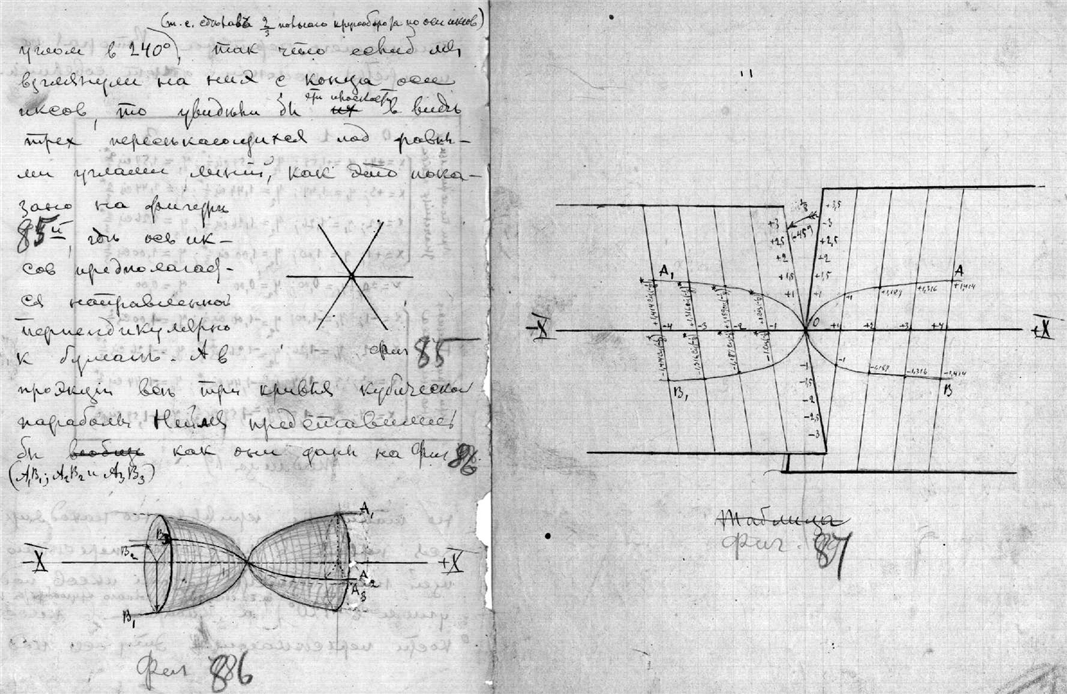 (т.е. сделавъ 2/3 полнаго кругооборота по оси иксов)
углом в 240°), так что если б мы
взглянули на них с конца оси
иксов, то увидѣли бы эти плоскости в видѣ
трех пересѣкающихся под равны-
ми углами линій, как это пока-
зано на фигурѣ
85й, гдѣ ось ик-
сов предполагает-
ся направленной
перпендикулярно
к бумагѣ. А в
проэкціи всѣ три кривыя кубической
параболы Нейля представились
бы как они даны на Фиг 86
(A₁B₁; A₂B₂ и A₃B₃)
Фиг 85
-X
+X
B₂
B₃
B₁
A₁
A₂
A₃
Фиг 86
"
⅛
-45°
+3,5
+3
-3
+2,5
+2,5
+2
+2
+1,5
+1,5
+1
+1
A₁
A
-X
-4
-3
-2
-1
0
+1
+2
+3
+4
+X
+1
+1,187
+1,316
+1,414
-1
-1,187
-1,316
-1,414
B₁
B
-1
-1,5
-2
-2,5
-3
Таблица
Фиг. 87